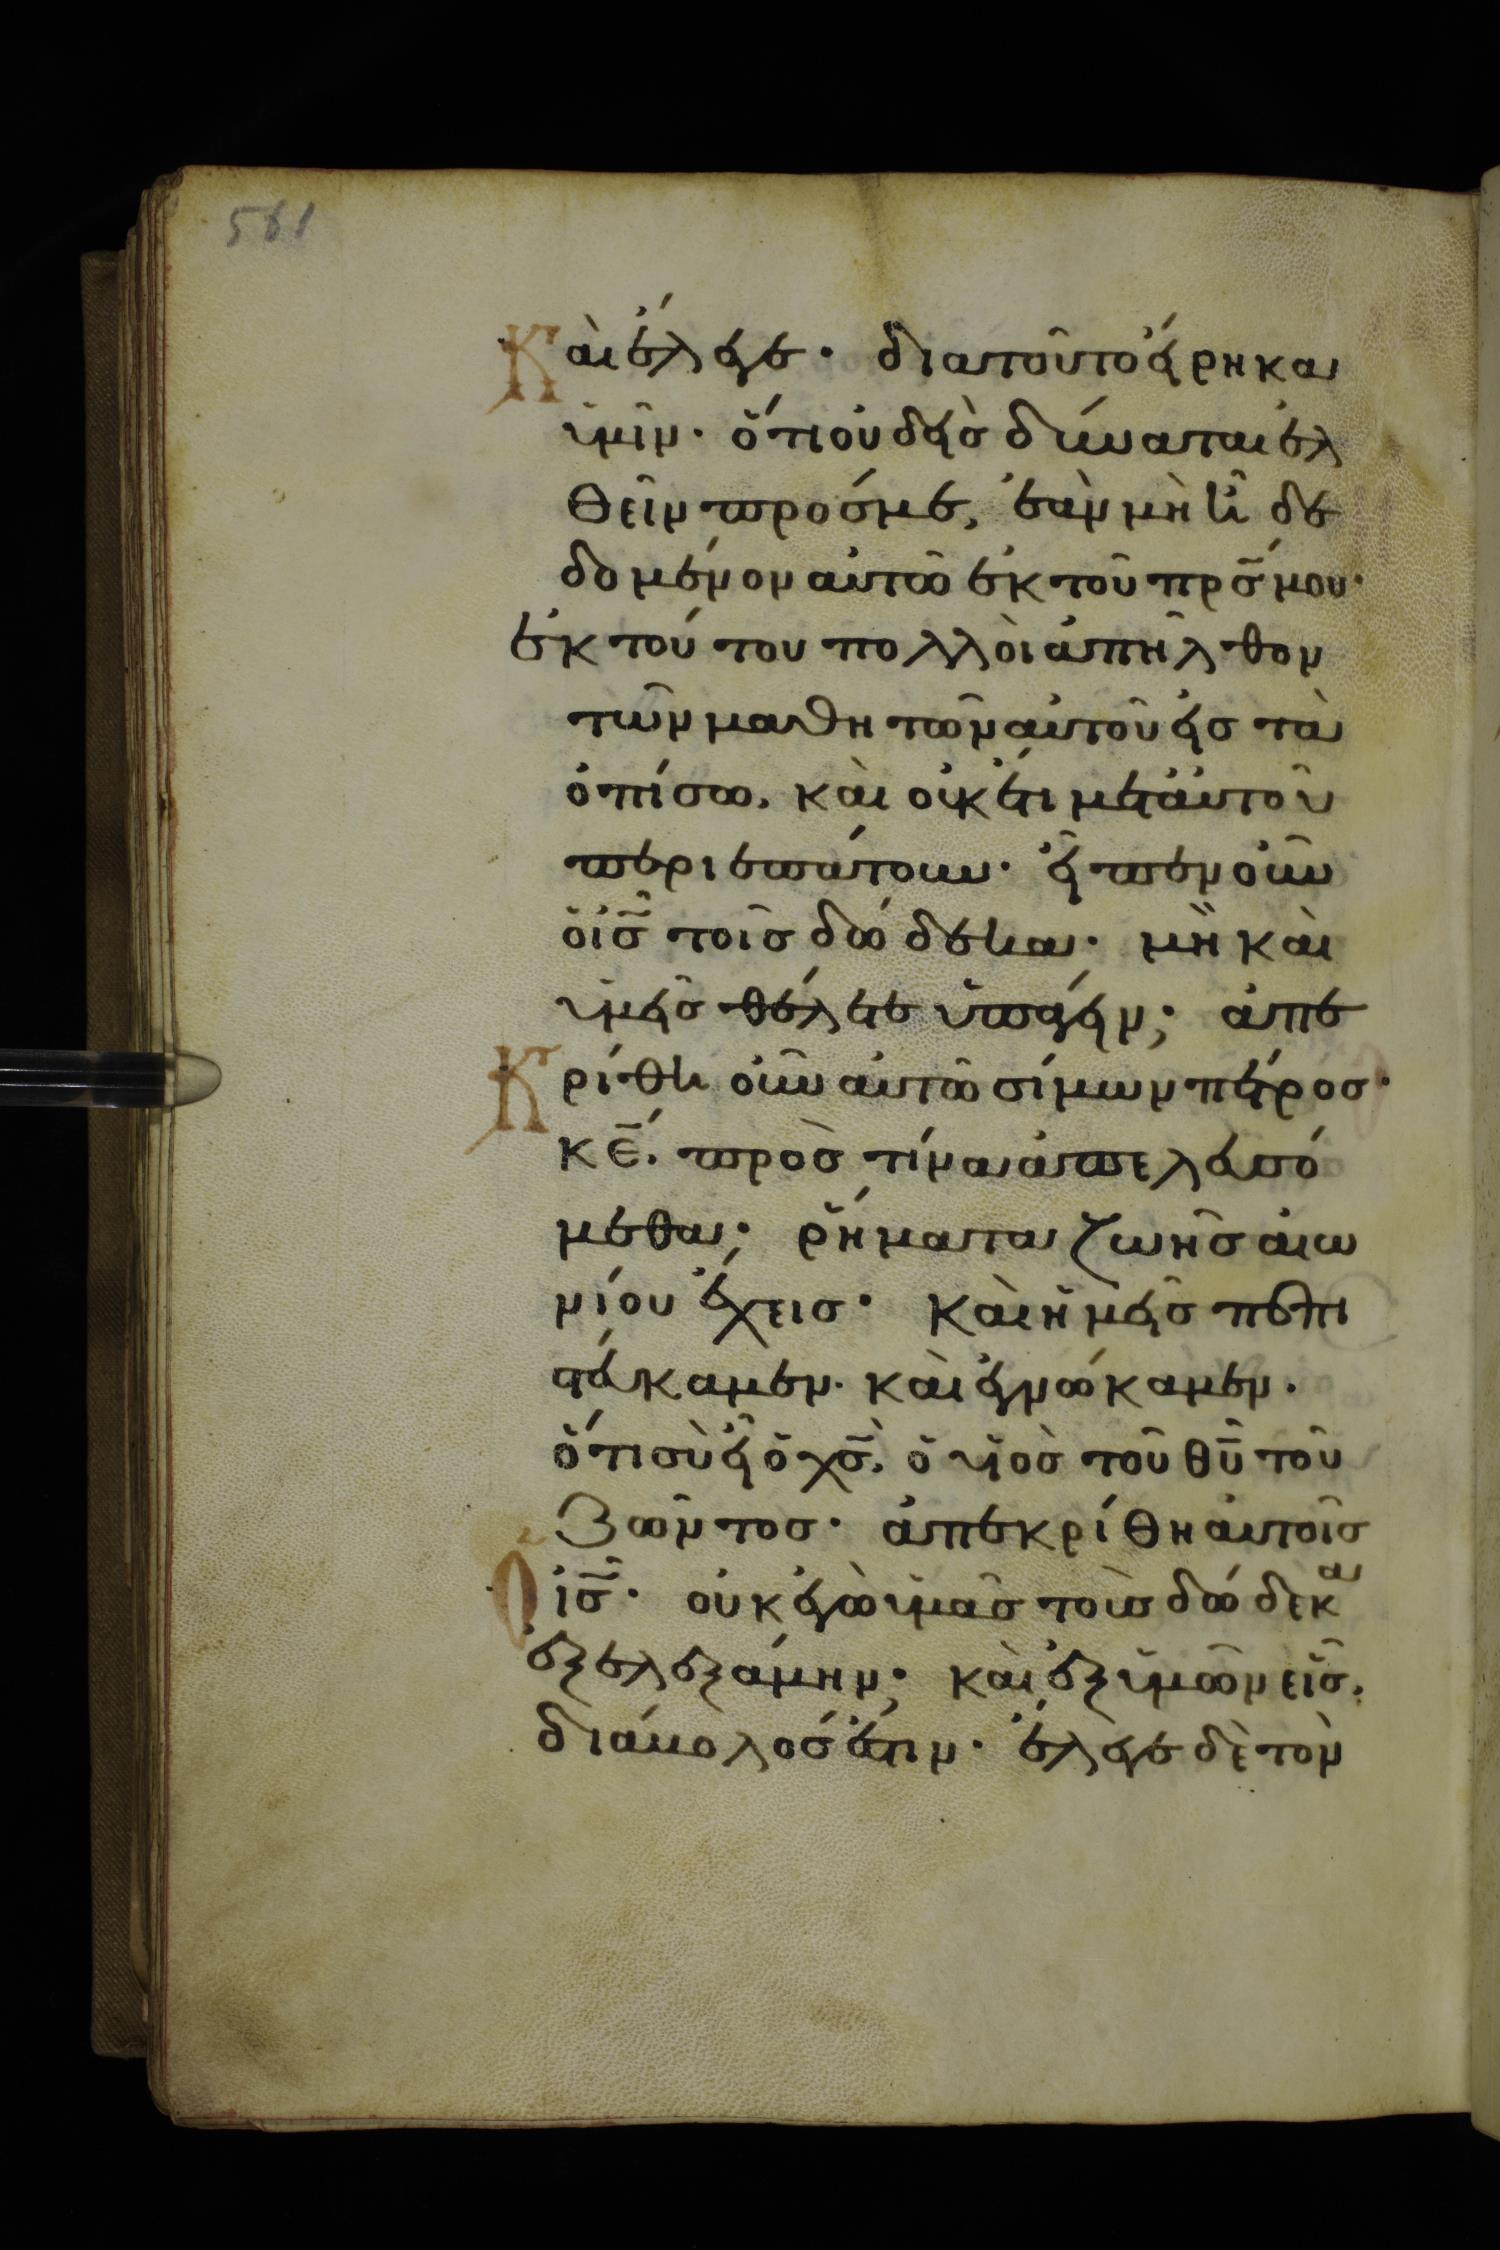 561
Καὶ ἔλεγε· διατοῦτο εἴρηκα
ὑμῖν· ὅτι οὐδεὶς δύναται ἐλ
θεῖν πρός με, ἐὰν μὴ ἦ δε
δομένον αὐτῶ ἐκ τοῦ πρ̅σ μου·
ἐκ τούτου πολλοὶ ἀπῆλθον
τῶν μαθητῶν αὐτοῦ εἰς τὰ
ὀπίσω, καὶ οὐκέτι μετ' αὐτοῦ
περιεπάτουν· εἶπεν οὖν
ὁ ἰ̅σ τοῖς δώδεκα· μὴ καὶ
ὑμεῖς θέλετε ὑπάγειν; ἀπε
Κρίθη οὖν αὐτῶ σίμων πέτρος·
κ̅ε, πρὸς τίνα ἀπελευσό
μεθα; ῥήματα ζωῆς αἰω
νίου ἔχεις· καὶ ἡμεῖς πεπι
στεύκαμεν· καὶ ἐγνώκαμεν·
ὅτι σὺ εἶ ὁ χ̅σ, ὁ υἱὸς τοῦ θ̅υ τοῦ
ζῶντος· ἀπεκρίθη αὐτοῖς
Ὁ ἰ̅σ· οὐκ ἐγὼ ὑμᾶς τοὺς δώδεκα
ἐξελεξάμην; καὶ ἐξ ὑμῶν εἷς,
διάβολός ἐστιν· ἔλεγε δὲ τὸν